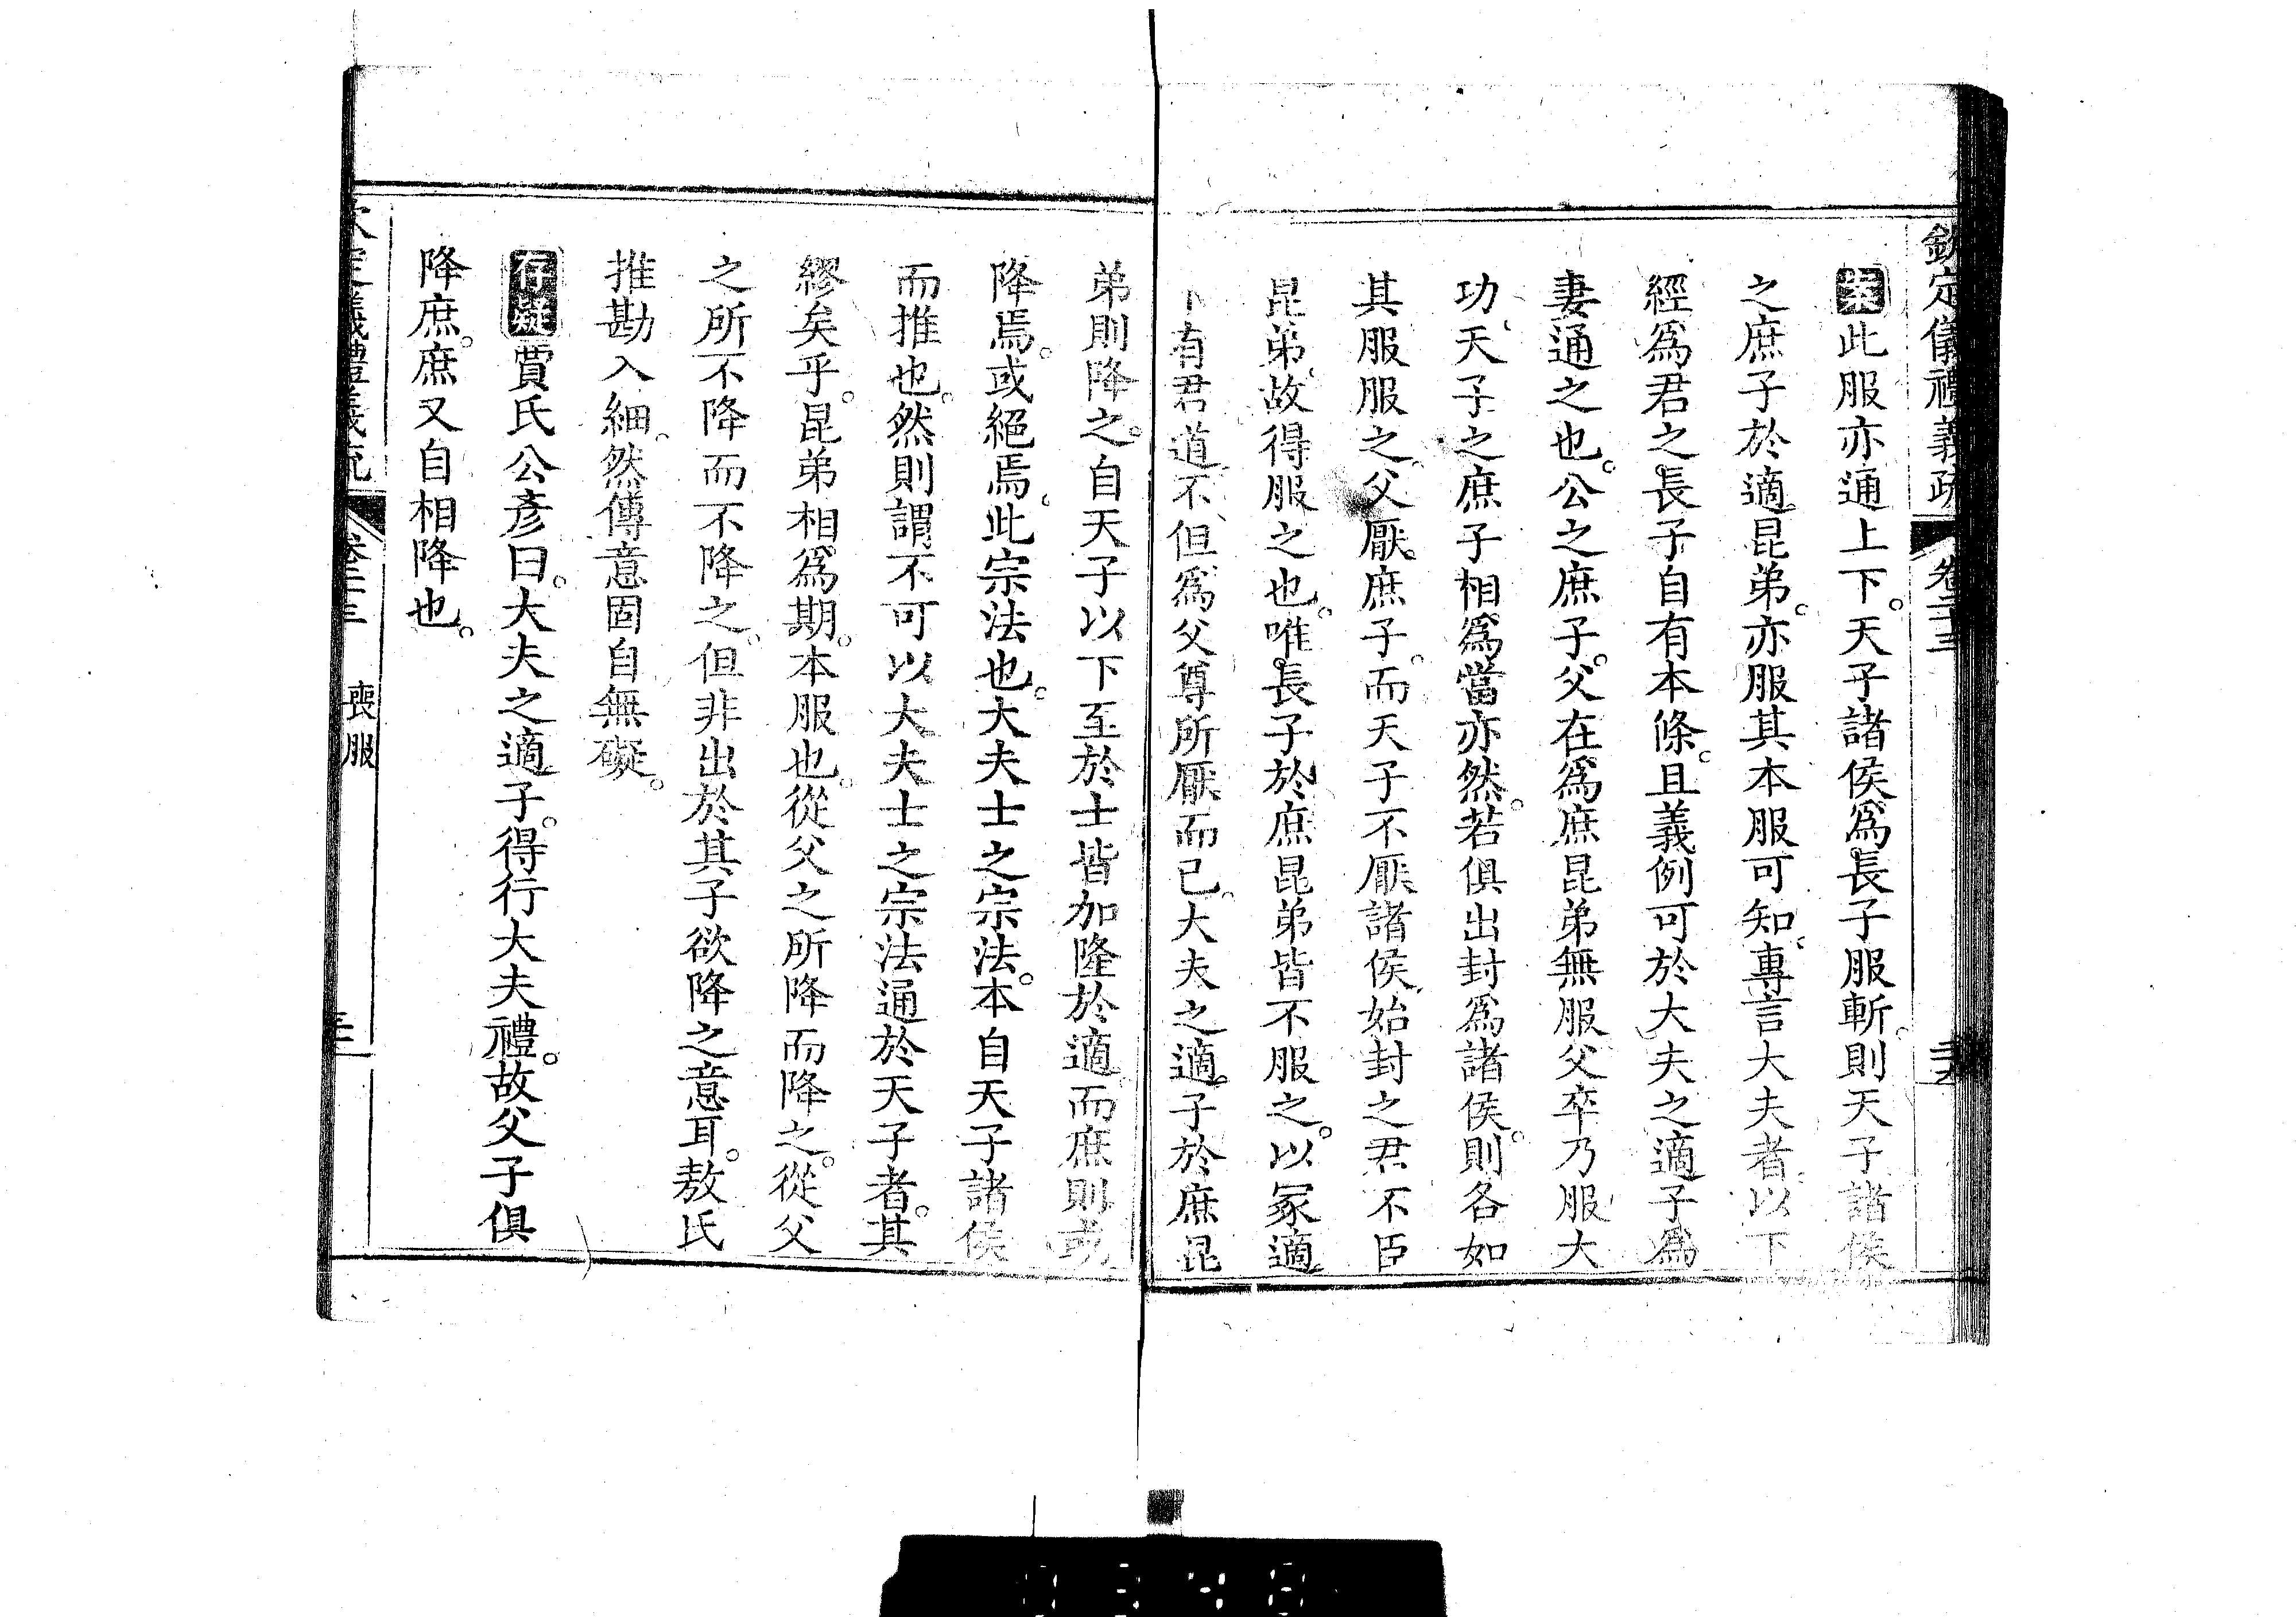 欽定儀禮義疏 卷二十三
案此服亦通上下。天子諸侯爲長子服斬。則天子諸侯
之庶子於適昆弟。亦服其本服可知。專言大夫者。以下
經爲君之長子自有本條。且義例可於大夫之適子爲
妻通之也。公之庶子。父在爲庶昆弟無服父卒乃服大
功、天子之庶子相爲當亦然。若俱出封爲諸侯。則各如
其服服之。父厭庶子。而天子不厭諸侯、始封之君不臣
昆弟、故得服之也。唯長子於庶昆弟皆不服之。以冢適
下有君道、不但爲父尊所厭而已。大夫之適子於庶昆
弟則降之。自天子以下至於士皆加隆於適。而庶則或
降焉。或絕焉、此宗法也。大夫士之宗法。本自天子諸侯
而推也。然則謂不可以大夫士之宗法通於天子者。其
繆矣乎。昆弟相爲期。本服也。從父之所降而降之。從父
之所不降而不降之。但非出於其子欲降之意耳。敖氏
推勘入細。然傳意固自無礙。
存疑賈氏公彥曰。大夫之適子。得行大夫禮。故父子俱
降庶。庶又自相降也。
喪服